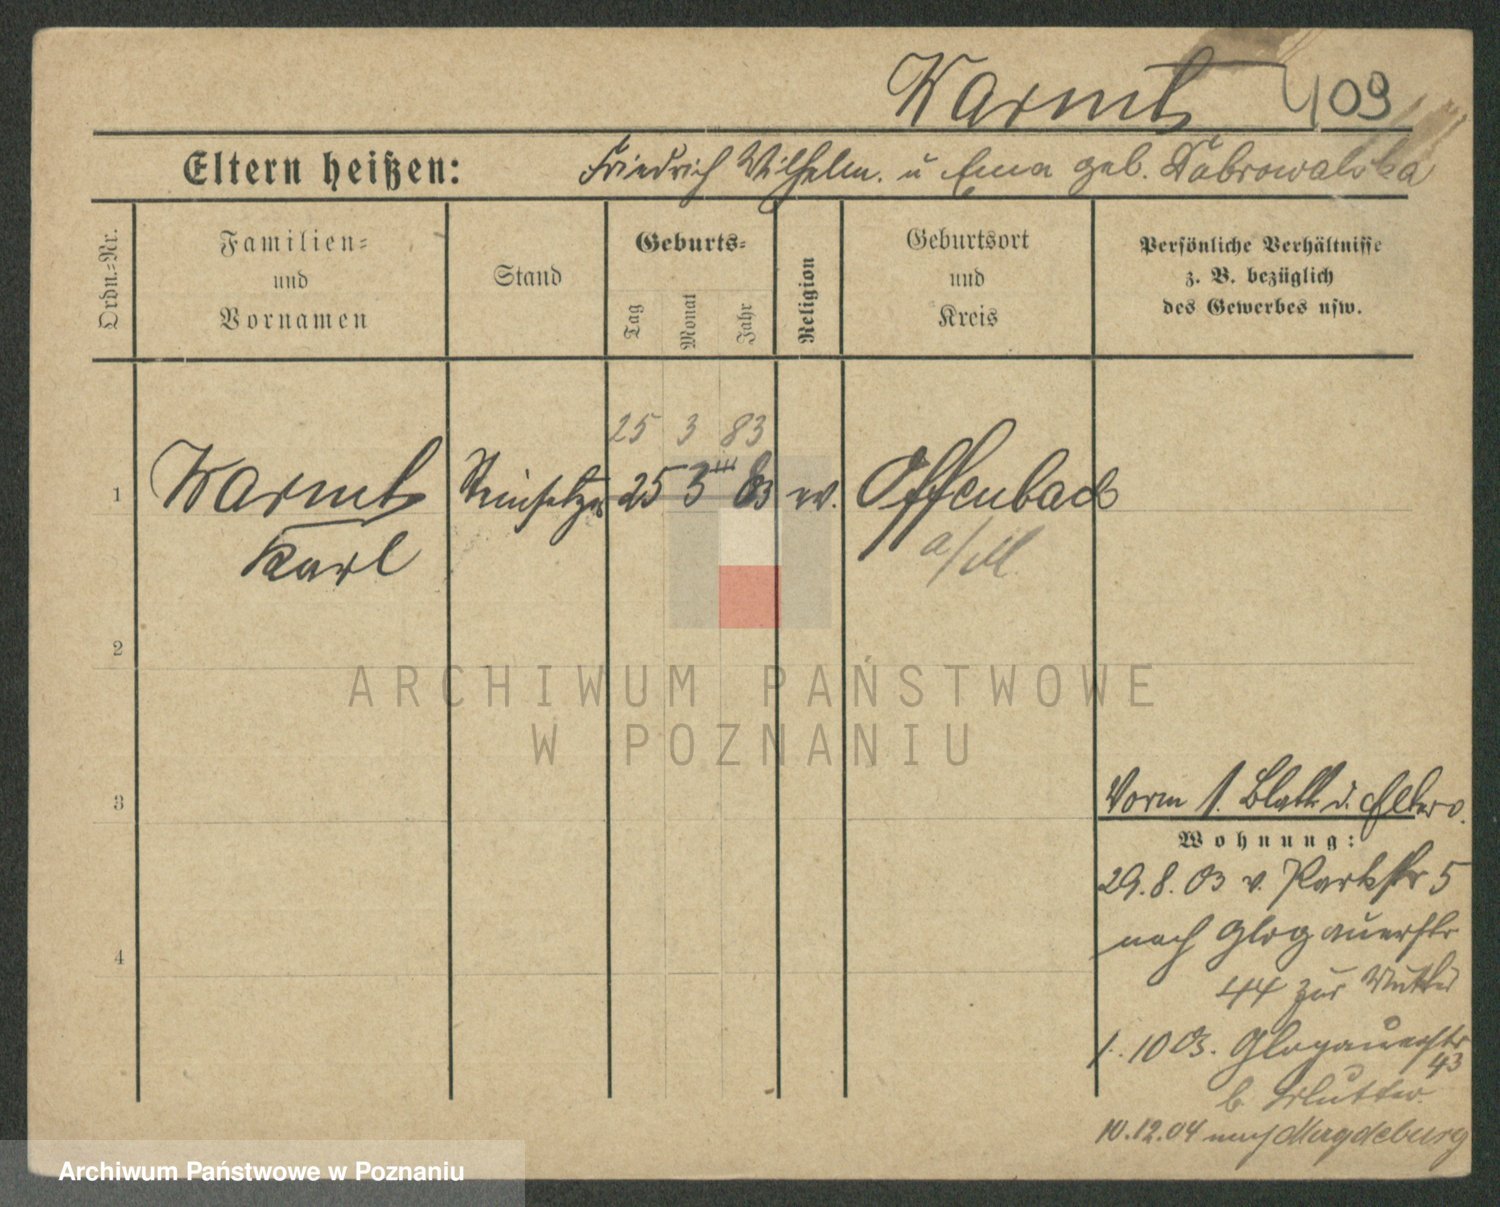 Warmt 409
Eltern heißen: Friedrich Wilhelm. u Ema geb. Dabrowalska
Ordn.-Nr.
Familien-
und
Vornamen
Stand
Geburts-
Tag
Monat
Jahr
Religion
Geburtsort
und
Kreis
Persönliche Verhältnisse
z. B. bezüglich
des Gewerbes usw.
25 3 83
1 Warmt Steinsetzer 25 3 83 ev. Offenbach
Karl a/M.
2
3
4
Vorm 1. Blatt d. Eltern.
Wohnung:
29.8.03 v. Parkstr 5
nach Glogauerstr
44 zur Mutter
1. 10 03. Glogauerstr
43
b. Mutter.
10.12.04 nach Magdeburg
ARCHIWUM PAŃSTWOWE
W POZNANIU
Archiwum Państwowe w Poznaniu